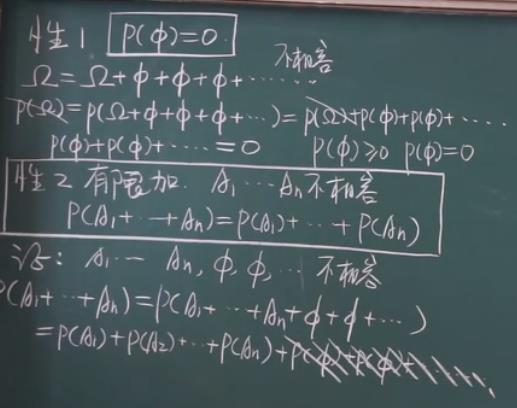 性1 P(φ)=0
不相容
Ω=Ω+φ+φ+φ+······
P(Ω)=P(Ω+φ+φ+φ+···)=P(Ω)+P(φ)+P(φ)+····
P(φ)+P(φ)+·····=0 P(φ)≥0 P(φ)=0
性2 有限可加. A₁···Aₙ不相容
P(A₁+··+Aₙ)=P(A₁)+··+P(Aₙ)
证: A₁··· Aₙ, φ, φ, ··· 不相容
P(A₁+···+Aₙ)=P(A₁+···+Aₙ+φ+φ+···)
=P(A₁)+P(A₂)+···+P(Aₙ)+P(φ)+P(φ)+····